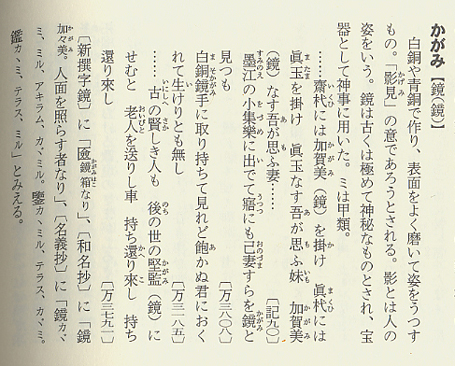 かがみ【鏡（鏡）】
白銅や青銅で作り、表面をよく磨いて姿をうつす
もの。「影見」の意であろうとされる。影とは人の
姿をいう。鏡は古くは極めて神秘なものとされ、宝
器として神事に用いた。ミは甲類。
……齋杙には加賀美（鏡）を掛け 眞杙には
眞玉を掛け 眞玉なす吾が思ふ妹 加賀美
（鏡）なす吾が思ふ妻…… 〔記九〇〕
墨江の小集樂に出でて寤にも己妻すらを鏡と
見つも 〔万三八〇八〕
白銅鏡手に取り持ちて見れど飽かぬ君におく
れて生けりとも無し 〔万三一八五〕
……古の賢しき人も 後の世の堅監（鏡）に
せむと 老人を送りし車 持ち還り來し 持ち
還り來し 〔万三七九一〕
〔新撰字鏡〕に「鏡箱なり」、〔和名抄〕に「鏡
加々美。人面を照らす者なり」、〔名義抄〕に「鏡 カヾ
ミ、ミル、アキラム、カヾミル。鑒 カヾミル、テラス、カヾミ。
鑑 カヾミ、テラス、ミル」とみえる。